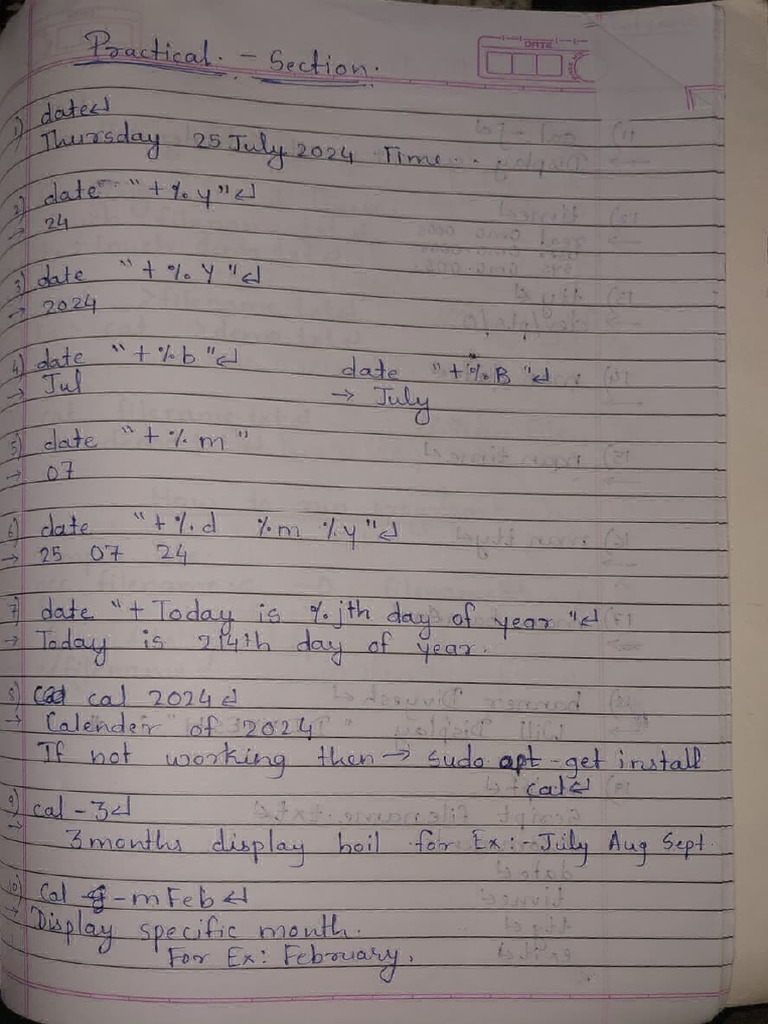 Practical. - Section.
DATE
1) date↵
Thursday 25 July 2024 Time...
2) date "+%y"↵
→ 24
3) date "+%Y"↵
→ 2024
4) date "+%b"↵ date "+%B"↵
→ Jul → July
5) date "+%m"
→ 07
6) date "+%d %m %y"↵
→ 25 07 24
7) date "+Today is %jth day of year"↵
→ Today is 214th day of year.
8) cal 2024↵
→ Calender of 2024
If not working then → sudo apt-get install
cal↵
9) cal -3↵
→ 3 months display hoil for Ex:- July Aug Sept.
10) Cal -m Feb↵
→ Display specific month.
For Ex: February.